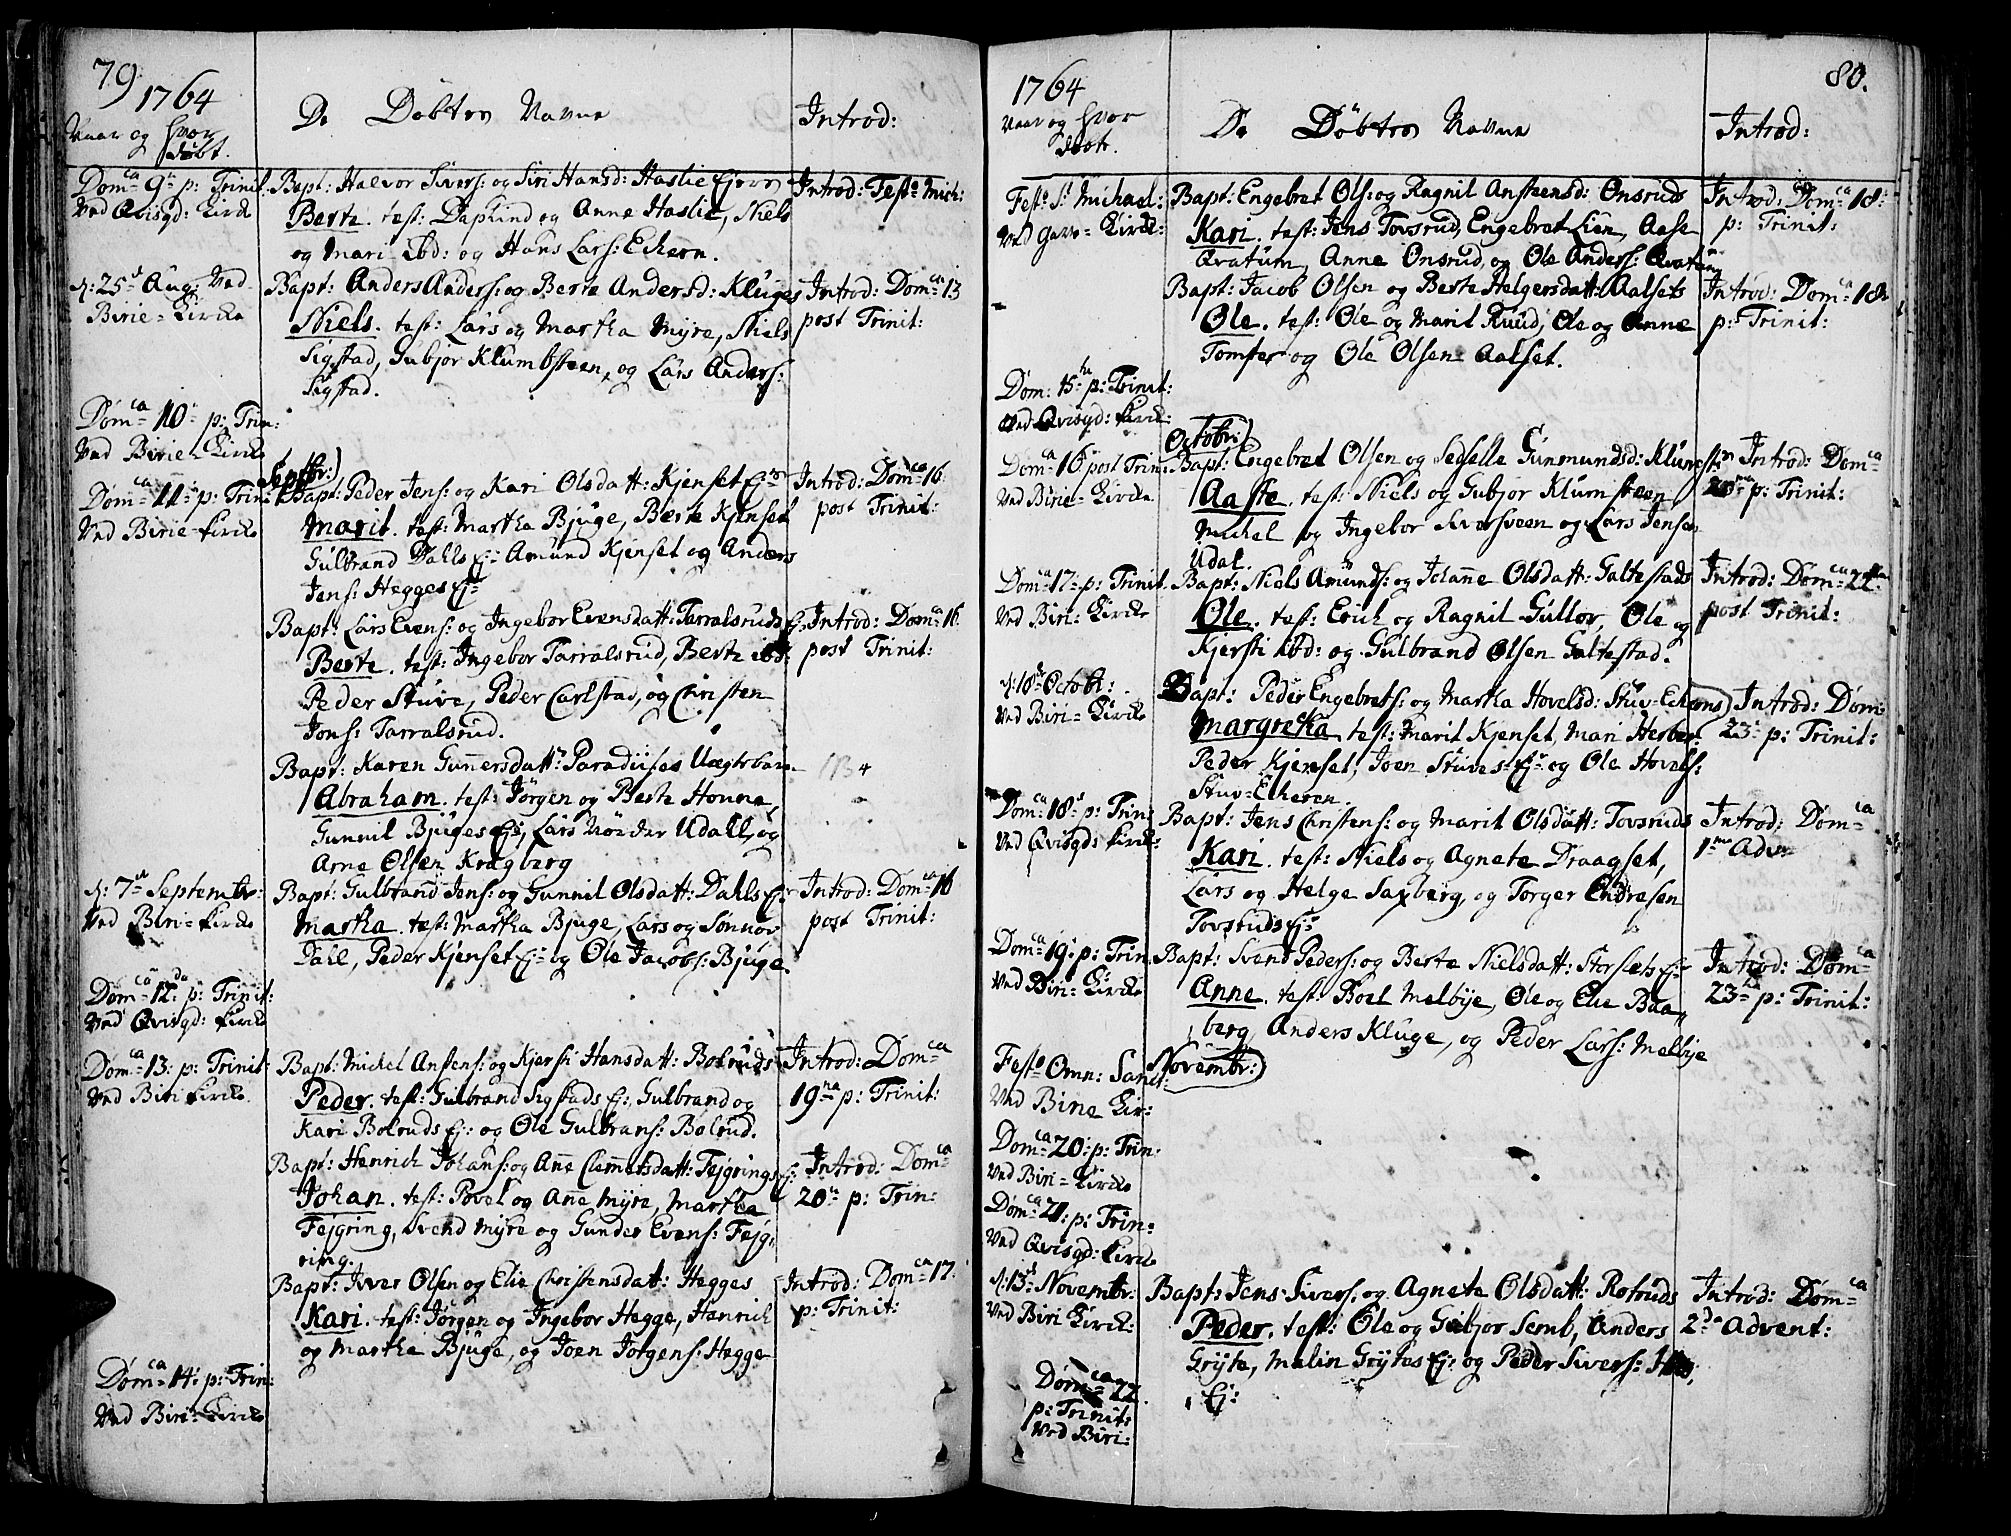 79
1764
Naar og hvor
døbt.
De Døbtes Navne
Introd:
Domca 9na p: Trinit.
Ved Qvisgd: Kirck
Bapt: Halvor Sivers: og Siri Hansd: Haslie Ejere
Berte. test: Dapfind og Anne Haslie, Niels
og Mari ibd: og Hans Lars: Eckern.
Introd: Festo Mich:
d: 25de Aug: Ved
Birie-Kircke
Bapt: Anders Anders: og Berte Andersd: Kluges
Niels. test: Lars og Martha Myre, Niels
Sigstad, Gubjor Klumbsteen, og Lars Anders:
Sigstad.
Introd: Domca 13
post Trinit:
Domca 10 p: Trin:
Ved Birie-Kircke
Domca 11 p: Trin:
Ved Birie-Kircke
Septbr:)
Bapt: Peder Jens: og Kari Olsdatt: Kjenset Ejer
Marit. test: Martha Bjuge, Berte Kjenset
Gulbrand Dahls Ej: Amund Kjenset og Anders
Jens: Hegges Ej:
Introd: Domca 16
post Trinit:
Bapt: Lars Evens: og Ingebor Evensdatt: Tarralsruds Ej:
Berte. test: Ingebor Tarralsrud, Berte ibd:
Peder Stuve, Peder Carlstad, og Christen
Jons: Tarralsrud.
Introd: Domca 16
post Trinit:
Bapt: Karen Gunnersdattr Paradiises Uægtebarn
Abraham. test: Jørgen og Berte Honne,
Gunnil Bjuges Ej:, Lars Nordre Udall, og
Arne Olsen Kragberg
d: 7de Septembr:
Ved Biri-Kircke
Bapt: Gulbrand Jens: og Gunnil Olsdatt: Dahls Ej:
Martha. test: Martha Bjuge, Lars og Sønnov
Dahl, Peder Kjenset Ej: og Ole Jacobs: Bjuge.
Introd: Domca 16
post Trinit:
Domca 12da p: Trinit:
Ved Qvisgd: Kircke
Domca 13: p: Trinit:
Ved Biri Kircke.
Bapt: Mickel Ansten: og Kjersti Hansdatt: Bolruds
Peder. test: Gulbrand Sigstads Ej:, Gulbrand og
Kari Bolruds Ej: og Ole Gulbrans: Bolrud.
Introd: Domca
19na p: Trinit:
Bapt: Henrich Johans: og Anne Clemmetsdatt: Fejgrings Ej:
Johan. test: Povel og Anne Myre, Martha
Fejgring, Svend Myre og Gunder Evens: Fejg,
ring.
Introd: Domca
20 p: Trin:
Bapt: Iver Olsen og Elie Christensdatt: Hegges
Kari. test: Jørgen og Ingebor Hegge, Henrich
og Martha Bjuge, og Joen Jorgens: Hegge
Introd: Domca 17.
p: Trinit:
Domca 14: p: Trin:
Ved Biri-Kircke
80.
1764
Naar og hvor
døbt.
De Døbtes Navne
Introd:
Festo S: Michael:
Ved Kircke:
Bapt: Engebret Ols: og Ragnil Ansteensd: Onsruds
Kari. test: Jens Tovsrud, Engebret Lien, Aase
Qvatum, Anne Onsrud, og Ole Anders: Qvatum
Introd: Domca 18:
p: Trinit:
Bapt: Jacob Olsen og Berte Helgersdatt: Aalsets
Ole. test: Ole og Marit Ruud, Ole og Anne
Tomter og Ole Olsen Aalset.
Introd: Domca 18
p: Trinit:
Dom: 15 p: Trinit:
Ved Qvisgd: Kirck:
Domca 16 post Trin:
Ved Birie-Kircke
Octobr:)
Bapt: Engebret Olsen og Sedselle Gunmundsd: Klumsten
Aaste. test: Niels og Gubjor Klumsteen,
Mickel og Ingebor Sversveen og Lars Jenses
Udal.
Introd: Domca
20 p: Trinit:
Domca 17 p: Trinit.
Ved Biri-Kircke
Bapt: Niels Amunds: og Johanne Olsdatt: Galtestads
Ole. test: Erich og Ragnil Gullor, Ole og
Kjersti ibd: og Gulbrand Olsen Galtestad.
Introd: Domca 22
post Trinit:
d: 18de Octobr:
Ved Biri-Kircke
Bapt: Peder Engebrets: og Martha Hovelsd: Stuv-Eckerns)
Margretha test: Marit Kjenset, Mari Herber:
Peder Kjenset, Joen Stuves Ej: og Ole Hovels:
Stuv-Eckeren.
Introd: Dom:
23 p: Trinit:
Domca 18 p: Trin:
Ved Qvisgd: Kirck:
Bapt: Jens Christens: og Marit Olsdatt: Tovsruds
Kari. test: Niels og Agnete Draagset,
Lars og Helge Saxberg, og Torger Endresen
Tovsruds Ej:
Introd: Domca
1ma Adv:
Domca 19: p: Trin:
Ved Biri-Kircke
Bapt: Svend Peders: og Berte Nielsdatt: Storslets Ej:
Anne. test: Boel Melbye, Ole og Elie Baa,
berg Anders Kluge, og Peder Lars: Melbye
Introd: Domca
23 p: Trinit:
Festo Omn: Sanct:
Ved Birie Kir:
Novembr:)
Domca 20: p: Trin:
Ved Biri-Kircke
Domca 21: p: Trin:
Ved Qvisgd: Kircke
d: 13de Novembr:
Ved Biri Kirck:
Bapt: Jens Sivers: og Agnete Olsdatt: Rotruds
Peder. test: Ole og Gubjor Semb, Anders
Gryte, Malin Grytes Ej: og Peder Sivers:
Ej:
Introd: Domca
2da Advent:
Domca 22
p: Trinit:
Ved Biri: